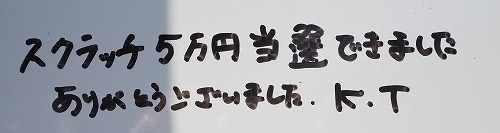 スクラッチ5万円当選できました
ありがとうございました. K.T